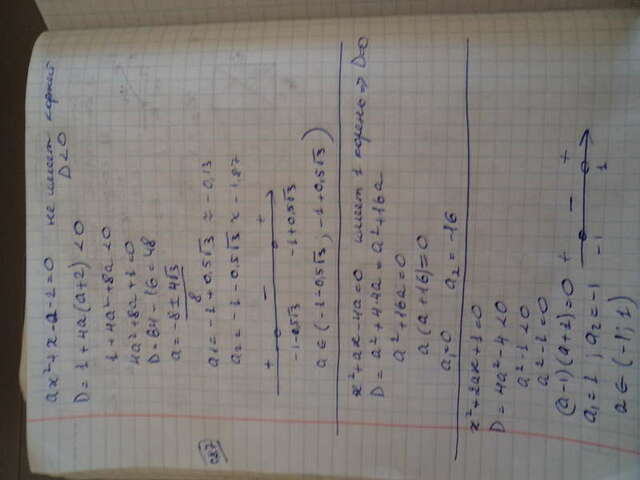 ax²+x-a-2=0 не имеет корней
D<0
D=1+4a(a+2)<0
1+4a²+8a<0
4a²+8a+1=0
D=64-16=48
a=-8±4√3
8
a₁=-1+0,5√3≈-0,13
a₂=-1-0,5√3≈-1,87
+ - +
-1-0,5√3 -1+0,5√3
a∈(-1-0,5√3; -1+0,5√3)
x²+ax-4a=0 имеет 1 корень⇒D=0
D=a²+4·4a=a²+16a
a²+16a=0
a(a+16)=0
a₁=0 a₂=-16
x²+2ax+1=0
D=4a²-4<0
a²-1<0
a²-1=0
(a-1)(a+1)=0
a₁=1; a₂=-1
+ - +
-1 1
a∈(-1;1)